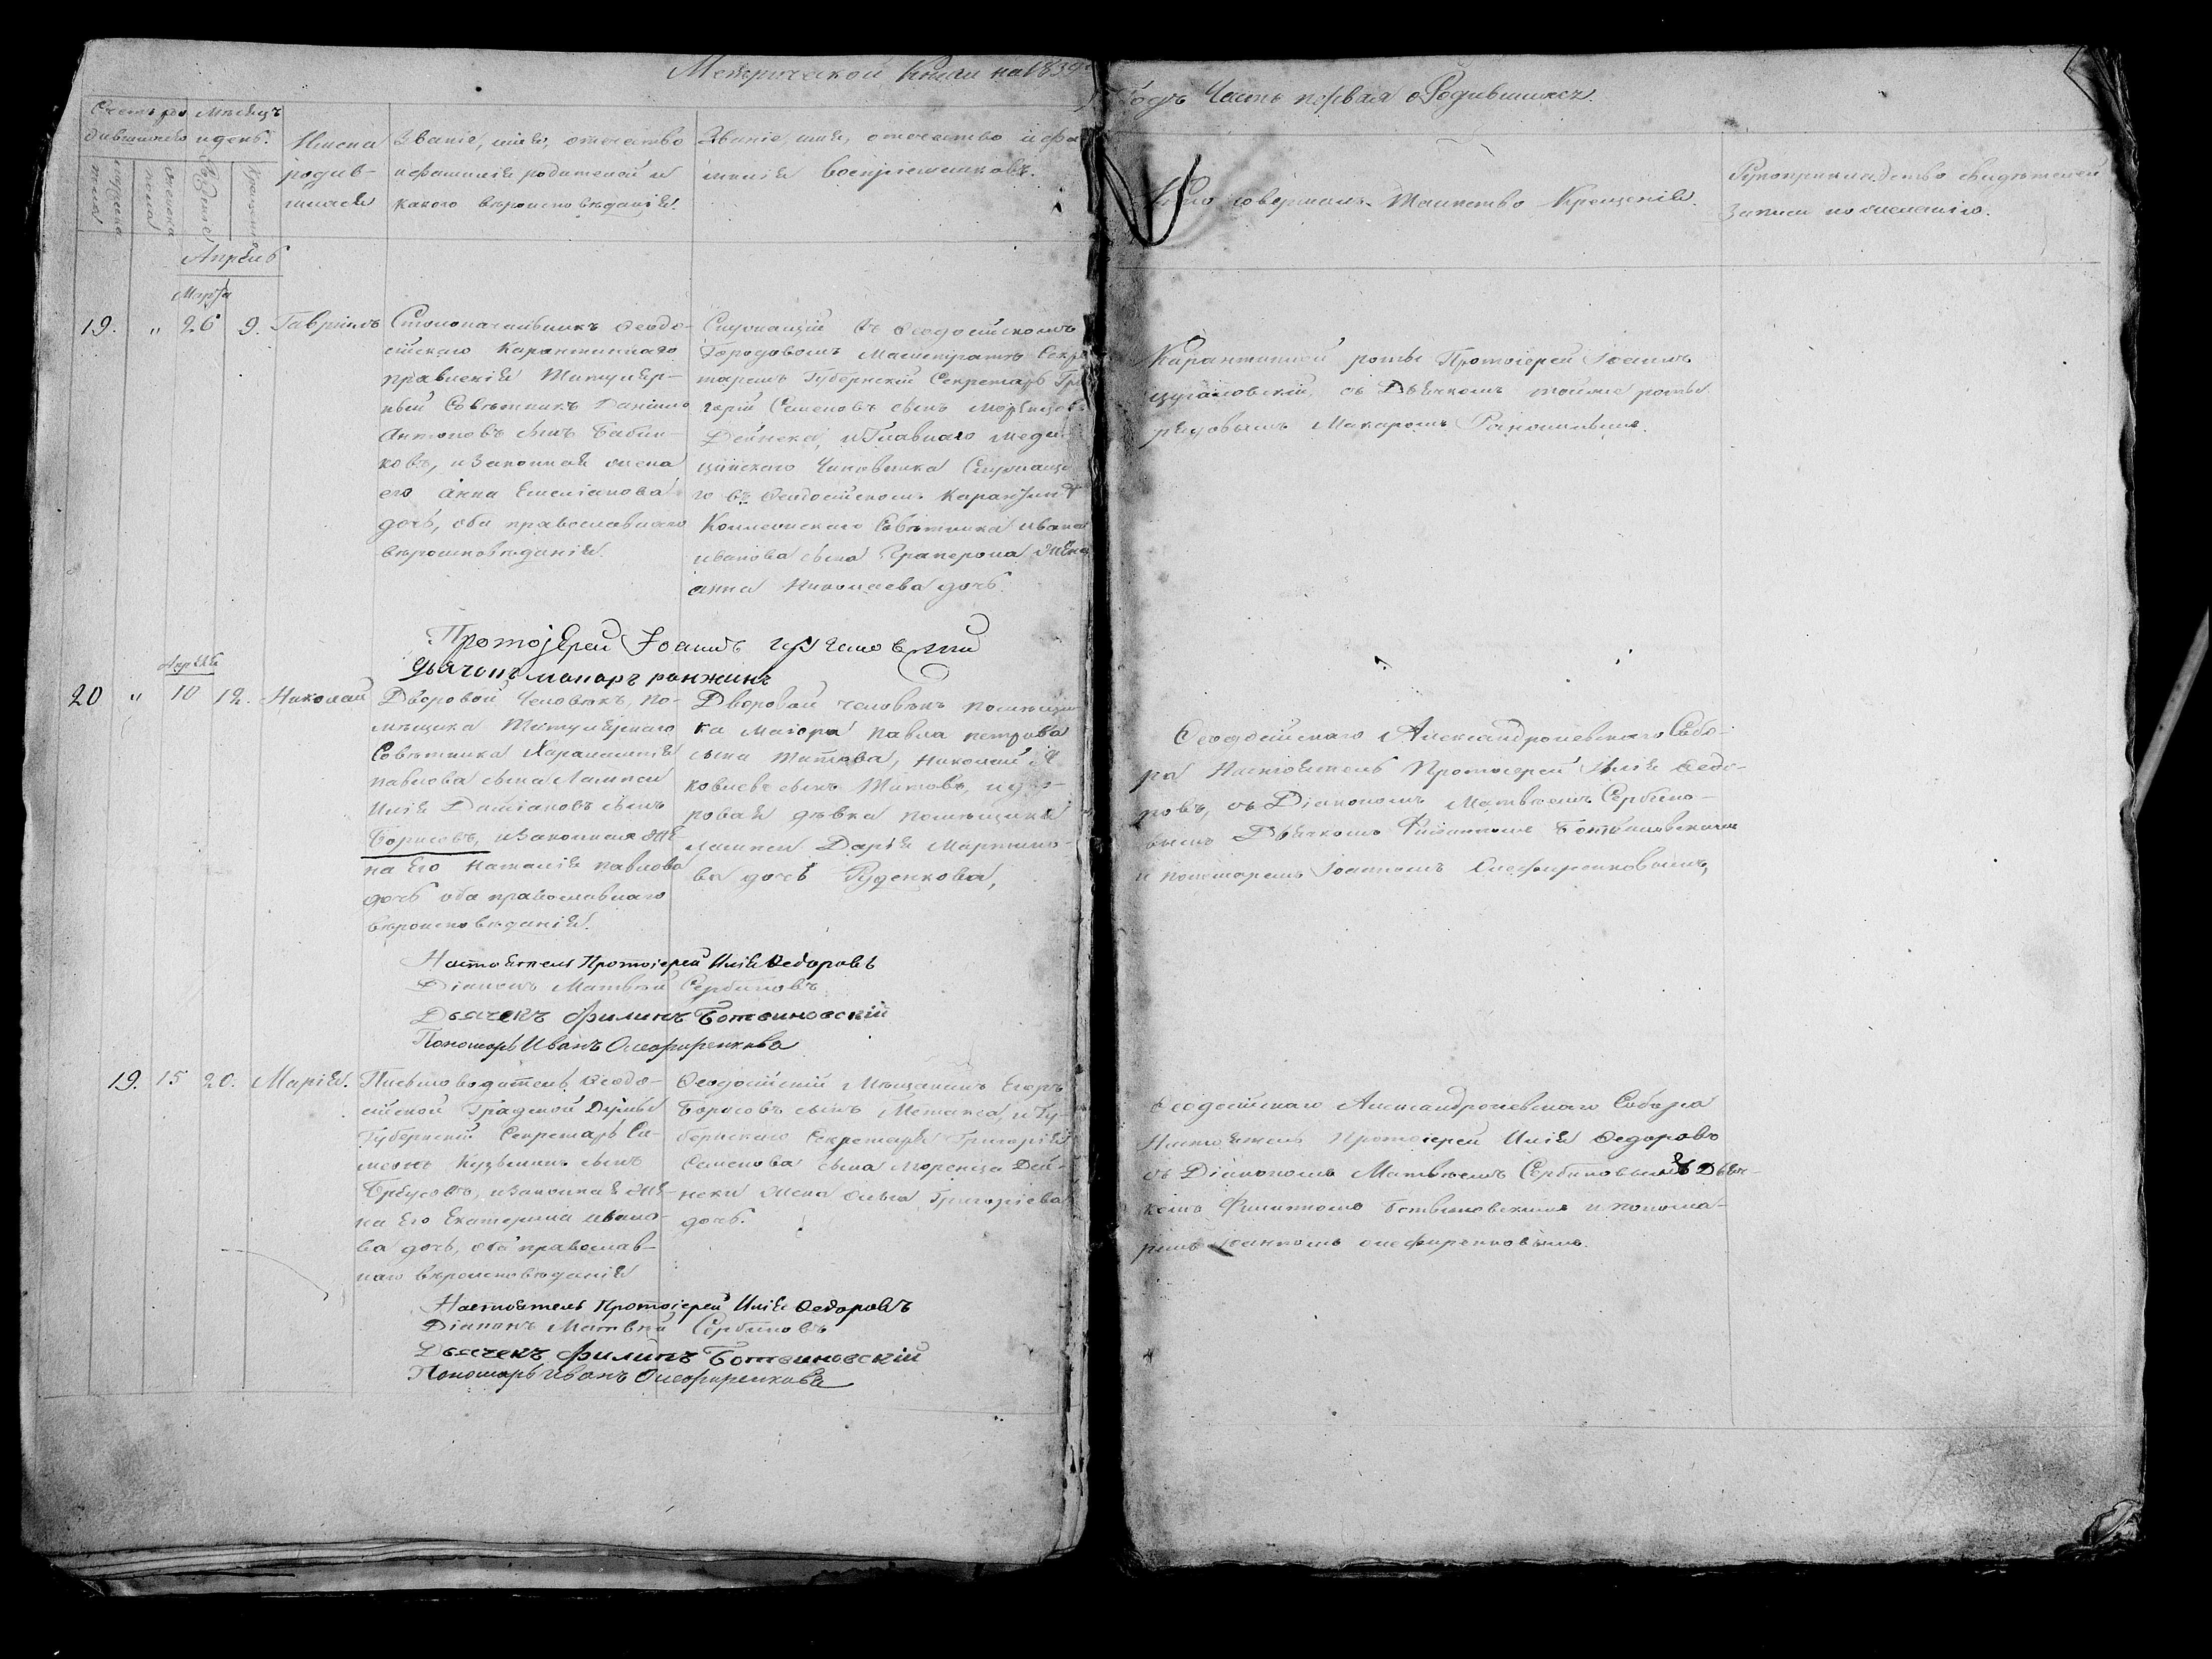 Метрической Книги на 1839й
Годъ Часть первая о Родившихся.
Счетъ ро Месяцъ
дившихся и день.
Имена
родив-
шихся
Званіе, имя, отечество
и фамилія родителей и
какого вероисповеданія.
Званіе, имя, отечество и фа
милія воспріемниковъ.
Кто совершалъ Таинство Крещенія.
Рукоприкладство свидетелей
записи по желанію.
Апрель
Марта
19. " 26 9. Гавріилъ
Столоначальникъ Ѳеодо-
сійскаго Карантиннаго
правленія Титуляр-
ный Советникъ Данііло
Антоновъ сынъ Бабич-
ковъ, и законная жена
его Анна Емеліанова
дочь, оба православнаго
вероисповеданія.
Служащій въ Ѳеодосійскомъ
Городовомъ Магистрате Секре
таремъ Губернскій Секретарь Гри
горій Семеновъ сынъ
Дейнека, и Главнаго Меди
цинскаго Чиновника Служаща
го въ Ѳеодосійскомъ Карантине
Коллежскаго Советника Ивана
Иванова сына Граперона жена
Анна Николаева дочь.
Карантинной роты Протоіерей Іоаннъ
съ Дьячкомъ тойже роты
рядовымъ Макаромъ
Протоіерей Іоаннъ
дьячокъ макаръ ранжинъ
Апреля
20 " 10 12. Николай
Дворовой Человекъ, по-
мещика Титулярнаго
Советника Харалампія
Павлова сына Лампси
Илія Даміановъ сынъ
Борисовъ, и законная же-
на Его Наталія Павлова
дочь оба православнаго
вероисповеданія.
Дворовой человекъ помещи
ка Маіора Павла Петрова
сына Титова, Николай Я
ковлевъ сынъ Титовъ, и дво-
ровая девка помещика
Лампси Дарія Мартино-
ва дочь Руденкова,
Ѳеодосійскаго Александроневскаго Собо-
ра Настоятель Протоіерей Илія Ѳедо-
ровъ, съ Діакономъ Матвеемъ Сербино-
вымъ Дьячкомъ Филиппомъ Ботвиновскимъ
и пономаремъ Іоанномъ Олефиренковымъ,
Настоятель Протоіерей Илія Ѳедоровъ
Діаконъ Матвей Сербиновъ
Дьячекъ Филипъ Ботвиновскій
Пономарь Иванъ Олефиренковъ
19. 15 20. Марія.
Письмоводитель Ѳеодо-
сійской Градской Думы
Губернскій Секретарь Си-
меонъ Кузьминъ сынъ
и законная же-
на Его Екатерина Ивано-
ва дочь, оба православ-
наго вероисповеданія
Ѳеодосійскій Мещанинъ Егоръ
Борисовъ сынъ Метакса, и Гу-
бернскаго Секретаря Григорія
Семенова сына Дей-
неки жена Ольга Григоріева
дочь.
Ѳеодосійскаго Александроневскаго Собора
Настоятель Протоіерей Илія Ѳедоровъ
съ Діакономъ Матвеемъ Сербиновымъ Дьяч-
комъ Филиппомъ Ботвиновскимъ и понома-
ремъ Іоанномъ Олефиренковымъ.
Настоятель Протоіерей Илія Ѳедоровъ
Діаконъ Матвей Сербиновъ
Дьячекъ Филипъ Ботвиновскій
Пономарь Иванъ Олефиренковъ